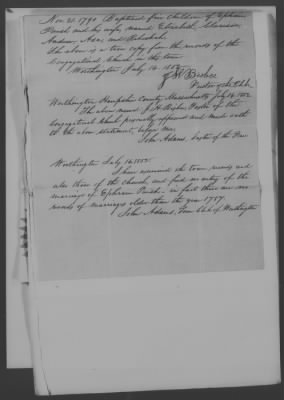 Nov. 21. 1790 Baptized five Children of Ephraim
Parish and his wife, named Elizabeth,
Asa, and
The above is a true copy from the records of the
Congregational Church in this town
Worthington July 16. 1852
J. H. Bisbee
Pastor of sd. Chh.
Worthington Hampshire County Massachusetts July 16 1852
The above named J. H. Bisbee Pastor of the
Congregational Church personally appeared and made oath
to the above statement, before me.
John Adams, Justice of the Peace
Worthington July 16, 1852.
I have examined the town records and
also those of the church and find no entry of the
marriage of Ephraim Parish - in fact there are no
records of marriages older than the year 1787.
John Adams, Town Clerk of Worthington